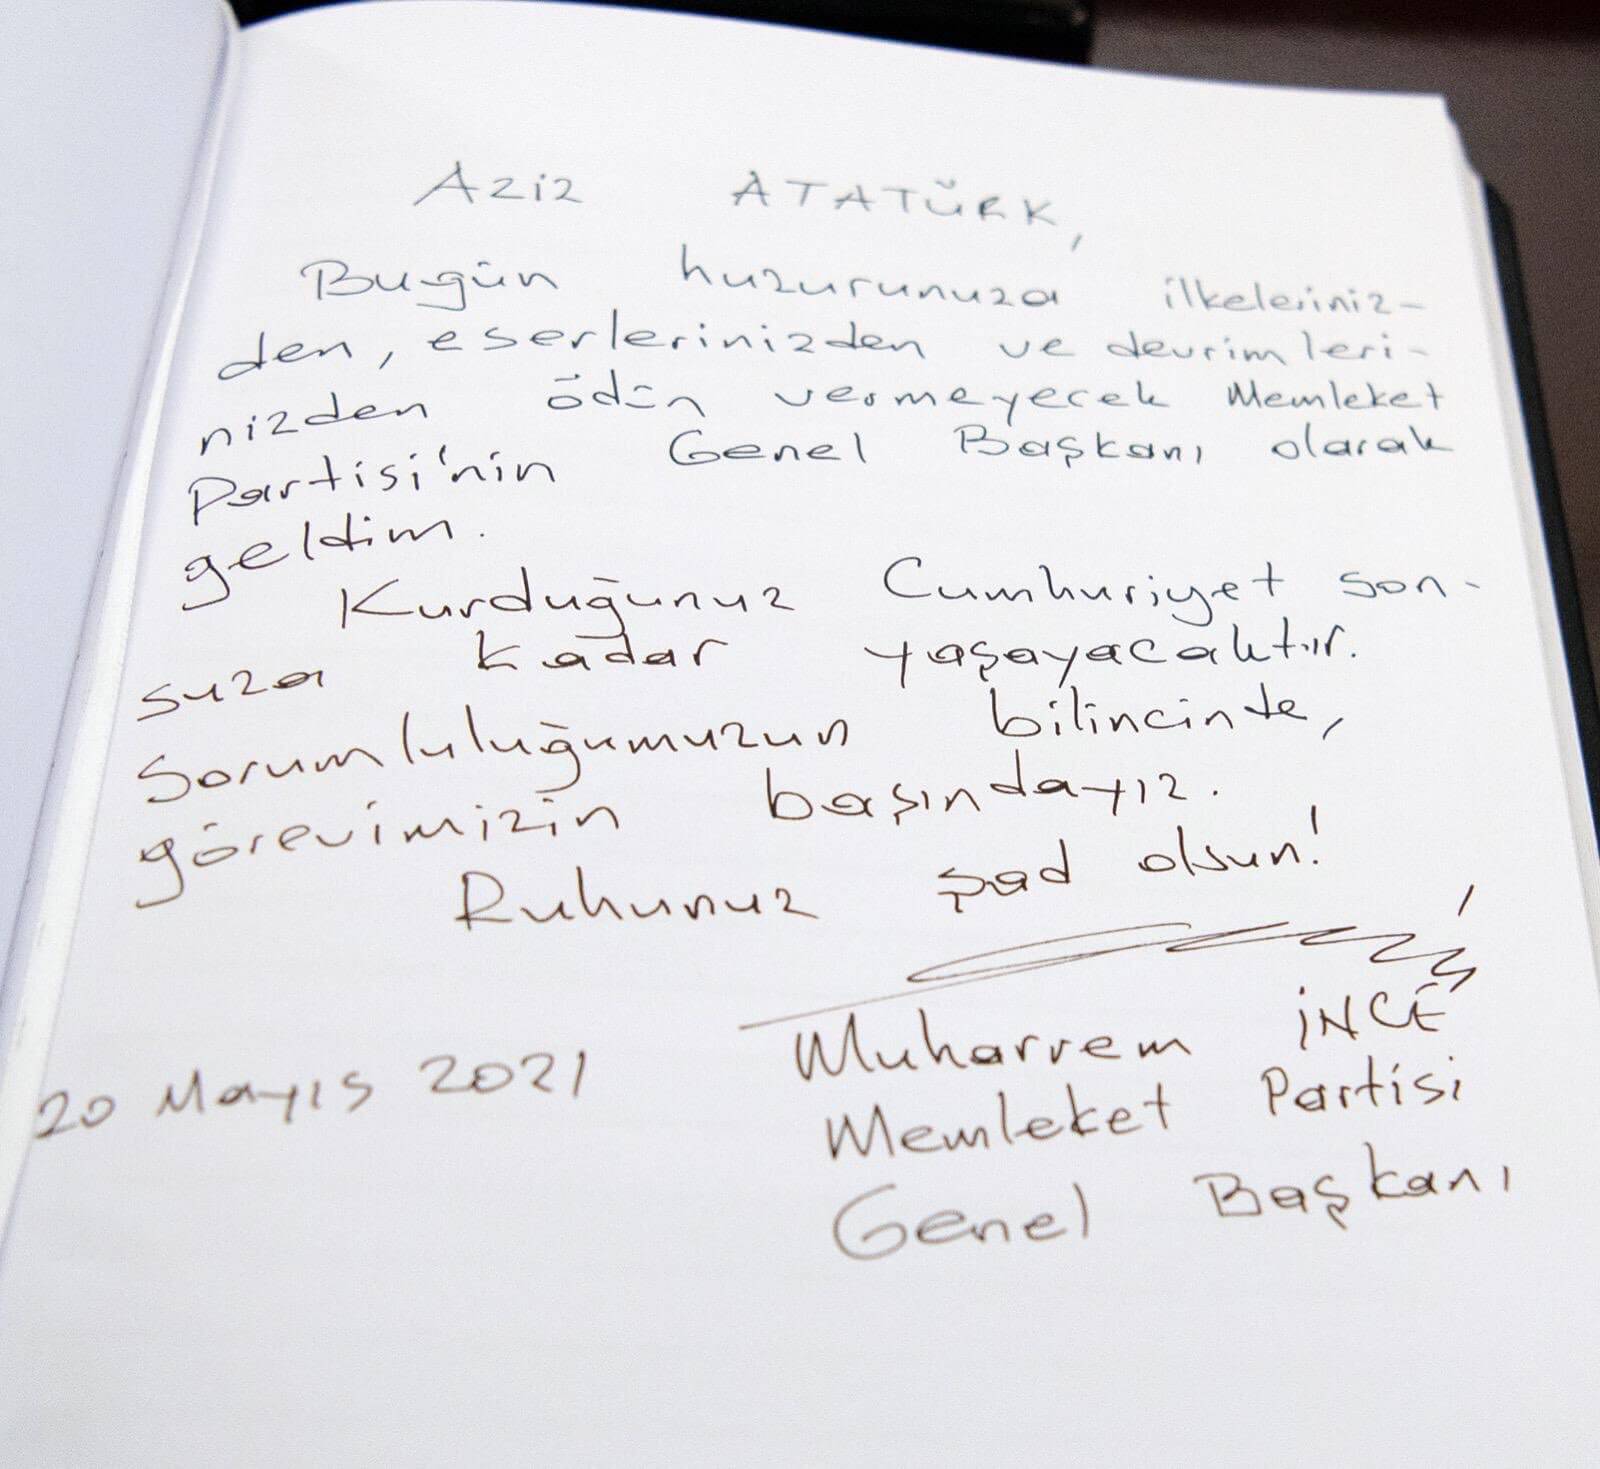 Aziz ATATÜRK,
Bugün huzurunuza ilkeleriniz-
den, eserlerinizden ve devrimleri-
nizden ödün vermeyecek Memleket
Partisi'nin Genel Başkanı olarak
geldim.
Kurduğunuz Cumhuriyet son-
suza kadar yaşayacaktır.
Sorumluluğumuzun bilincinde,
görevimizin başındayız.
Ruhunuz şad olsun!
Muharrem İNCE
20 Mayıs 2021
Memleket Partisi
Genel Başkanı